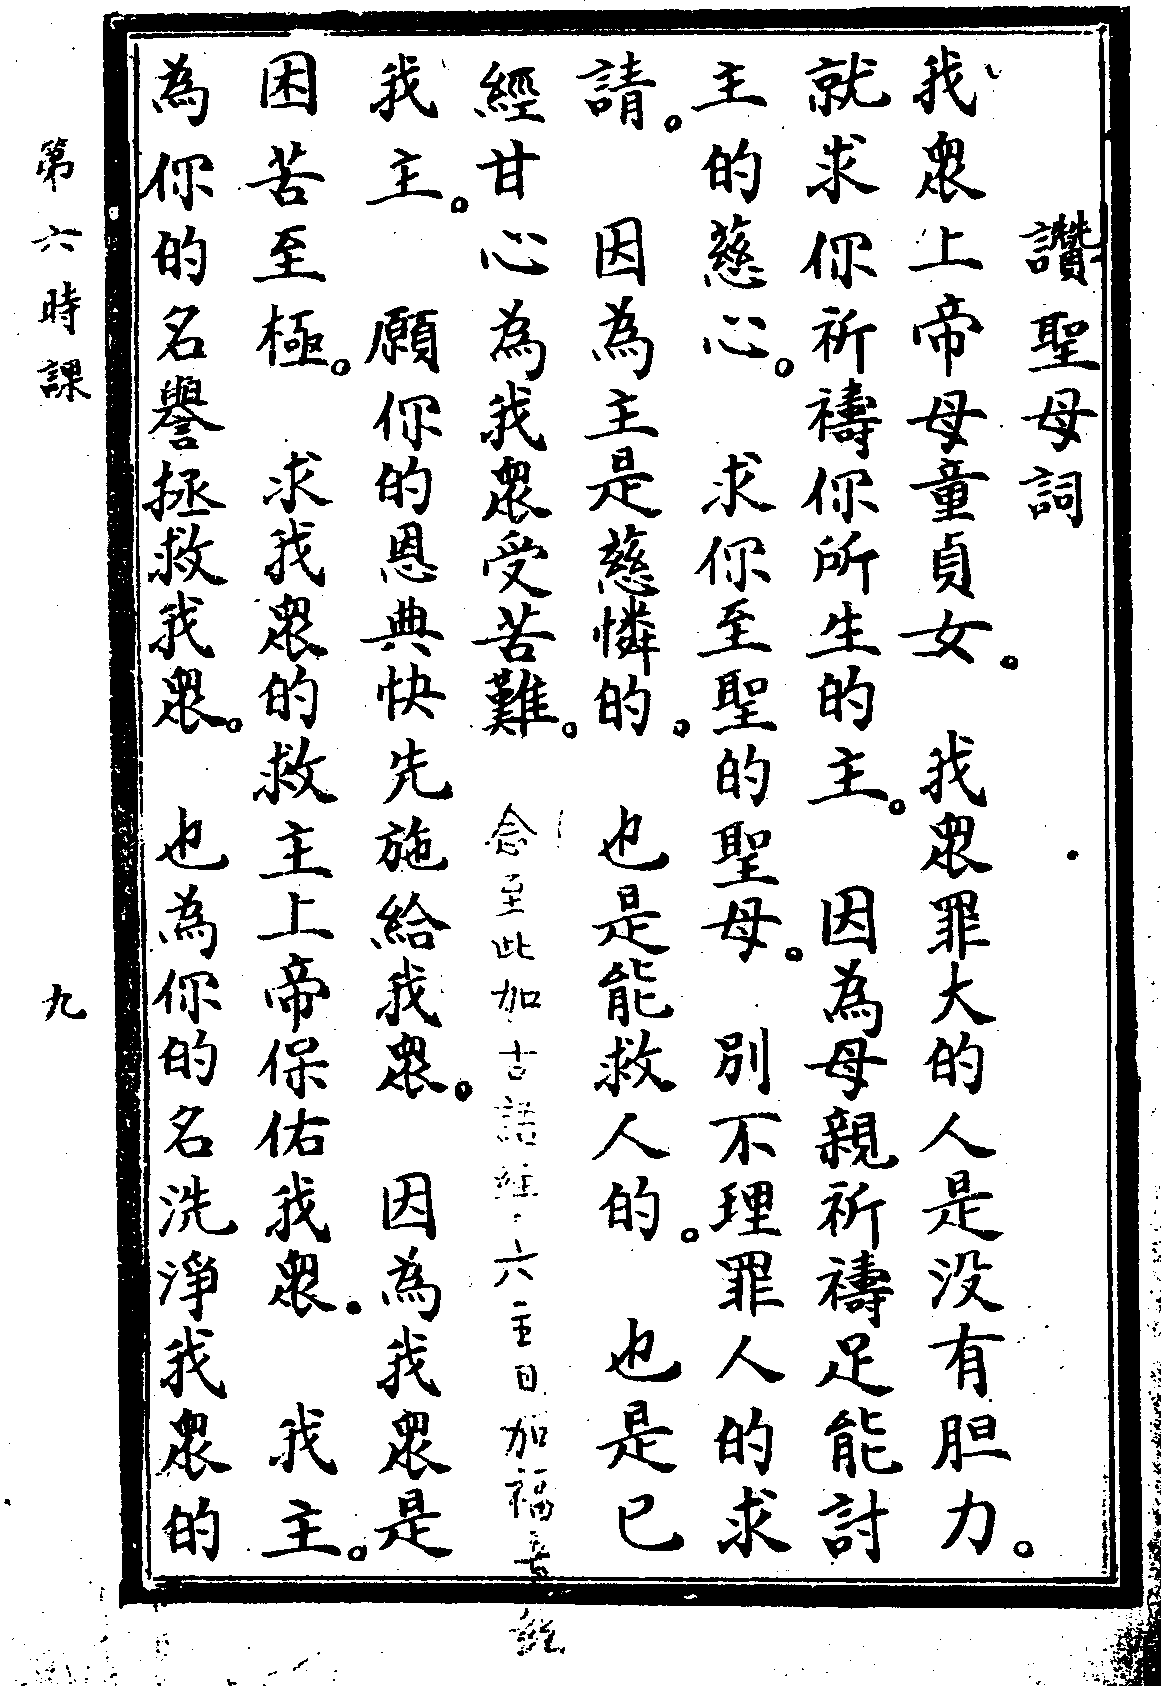 讚聖母詞
我衆上帝母童貞女。 我衆罪大的人是没有胆力。
就求你祈禱你所生的主。 因為母親祈禱足能討
主的慈心。 求你至聖的聖母。 別不理罪人的求
請。 因為主是慈憐的。 也是能救人的。 也是已
經甘心為我衆受苦難。 念至此加古話經六主日加福音經
我主。 願你的恩典快先施給我衆。 因為我衆是
困苦至極。 求我衆的救主上帝保佑我衆。 我主。
為你的名譽拯救我衆。 也為你的名洗淨我衆的
第六時課 九